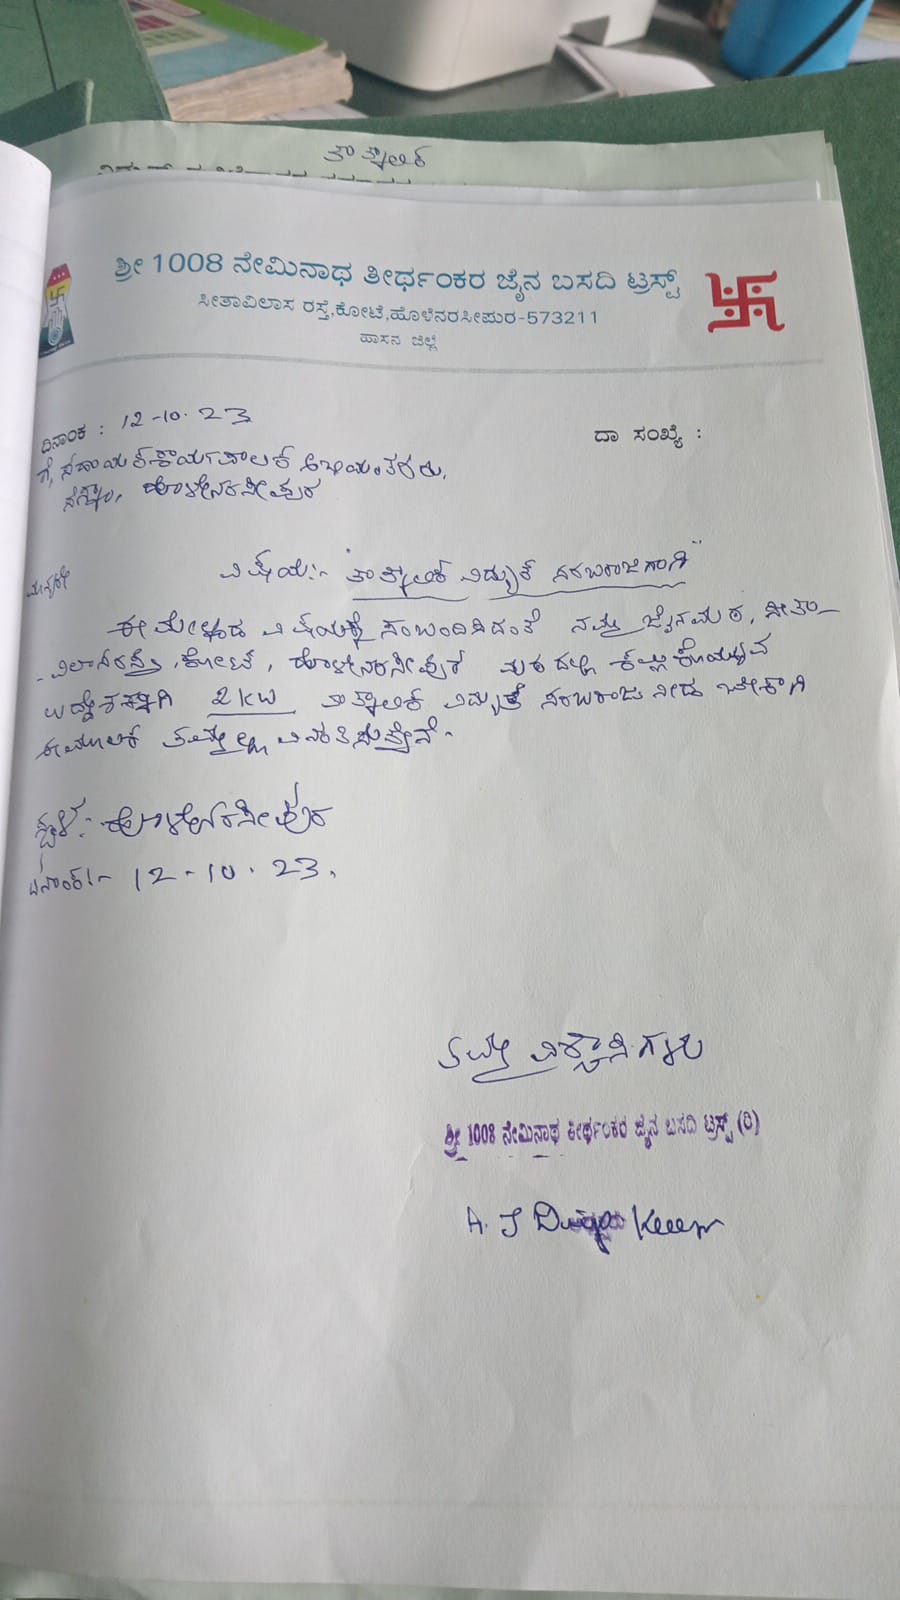 ತಾತ್ಕಾಲಿಕ
ಶ್ರೀ 1008 ನೇಮಿನಾಥ ತೀರ್ಥಂಕರ ಜೈನ ಬಸದಿ ಟ್ರಸ್ಟ್
ಸೀತಾವಿಲಾಸ ರಸ್ತೆ,ಕೋಟೆ,ಹೊಳೆನರಸೀಪುರ-573211
ಹಾಸನ ಜಿಲ್ಲೆ
ದಿನಾಂಕ : 12-10-23
ದಾ ಸಂಖ್ಯೆ :
ಗೆ, ಸಹಾಯಕ ಕಾರ್ಯಪಾಲಕ ಅಭಿಯಂತರರು,
ಹೊಳೇನರಸೀಪುರ
ಮಾನ್ಯರೇ
ವಿಷಯ:- "ತಾತ್ಕಾಲಿಕ ವಿದ್ಯುತ್ ಸರಬರಾಜಿಗಾಗಿ"
ಈ ಮೇಲ್ಕಂಡ ವಿಷಯಕ್ಕೆ ಸಂಬಂದಿಸಿದಂತೆ ನಮ್ಮ ಜೈನಮಠ, ಸೀತಾ-
-ವಿಲಾಸರಸ್ತೆ, ಕೋಟೆ, ಹೊಳೇನರಸೀಪುರ ಮಠದಲ್ಲಿ ಕಲ್ಲು ಕೊಯ್ಯುವ
ಉದ್ದೇಶಕ್ಕಾಗಿ 2KW ತಾತ್ಕಾಲಿಕ ವಿದ್ಯುತ್ ಸರಬರಾಜು ನೀಡ ಬೇಕಾಗಿ
ಈ ಮೂಲಕ ತಮ್ಮಲ್ಲಿ ವಿನಂತಿಸುತ್ತೇನೆ.
ಸ್ಥಳ:- ಹೊಳೇನರಸೀಪುರ
ದಿನಾಂಕ:- 12-10.23.
ತಮ್ಮ ವಿಶ್ವಾಸಿಗಳು
ಶ್ರೀ 1008 ನೇಮಿನಾಥ ತೀರ್ಥಂಕರ ಜೈನ ಬಸದಿ ಟ್ರಸ್ಟ್ (ರಿ)
A. J